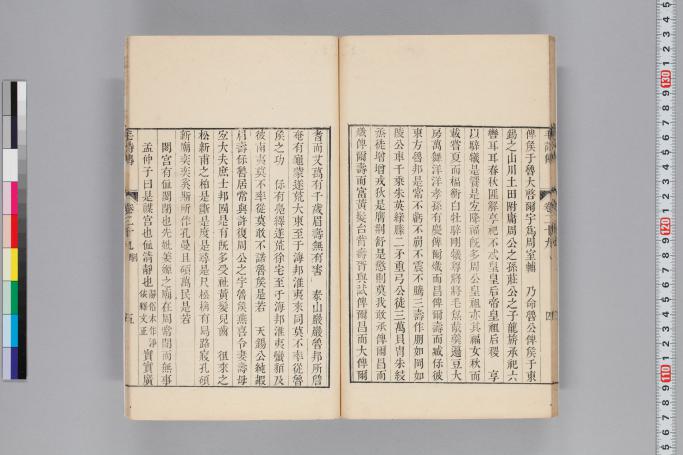 俾侯于魯大啓爾宇爲周室輔　乃命魯公俾侯于東
錫之山川土田附庸周公之孫莊公之子龍旂承祀六
轡耳耳春秋匪解享祀不忒皇皇后帝皇祖后稷　享
以騂犧是饗是宜降福旣多周公皇祖亦其福女秋而
載嘗夏而楅衡白牡騂剛犧尊將將毛炰胾羹籩豆大
房萬舞洋洋孝孫有慶俾爾熾而昌俾爾壽而臧保彼
東方魯邦是常不虧不崩不震不騰三壽作朋如岡如
陵公車千乘朱英綠縢二矛重弓公徒三萬貝冑朱綅
烝徒增增戎狄是膺荊舒是懲則莫我敢承俾爾昌而
熾俾爾壽而富黃髮台背壽胥與試俾爾昌而大俾爾
耆而艾萬有千歲眉壽無有害　泰山巖巖魯邦所詹
奄有龜蒙遂荒大東至于海邦淮夷來同莫不率從魯
侯之功　保有鳧繹遂荒徐宅至于海邦淮夷蠻貊及
彼南夷莫不率從莫敢不諾魯侯是若　天錫公純嘏
眉壽保魯居常與許復周公之宇魯侯燕喜令妻壽母
宜大夫庶士邦國是有旣多受祉黃髮兒齒　徂來之
松新甫之柏是斷是度是尋是尺松桷有舄路寢孔碩
新廟奕奕奚斯所作孔曼且碩萬民是若
閟宮有侐閟閉也先妣姜嫄之廟在周常閉而無事
孟仲子曰是禖宮也侐清靜也靜俗本作淨依釋文正實實廣